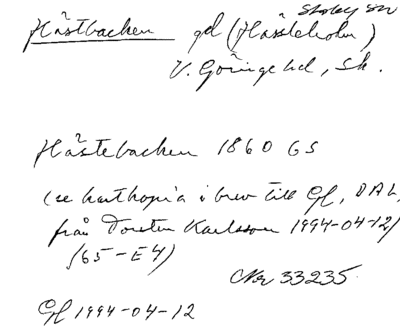 Stoby sn
Hästbacken gd (Hässleholm)
V. Göinge hd, Sk.
Hästebacken 1860 GS
(se kartkopia i brev till Gf, DAL,
från Torsten Karlsson 1994-04-12)
(65-E4)
Nr 33235
Gf 1994-04-12